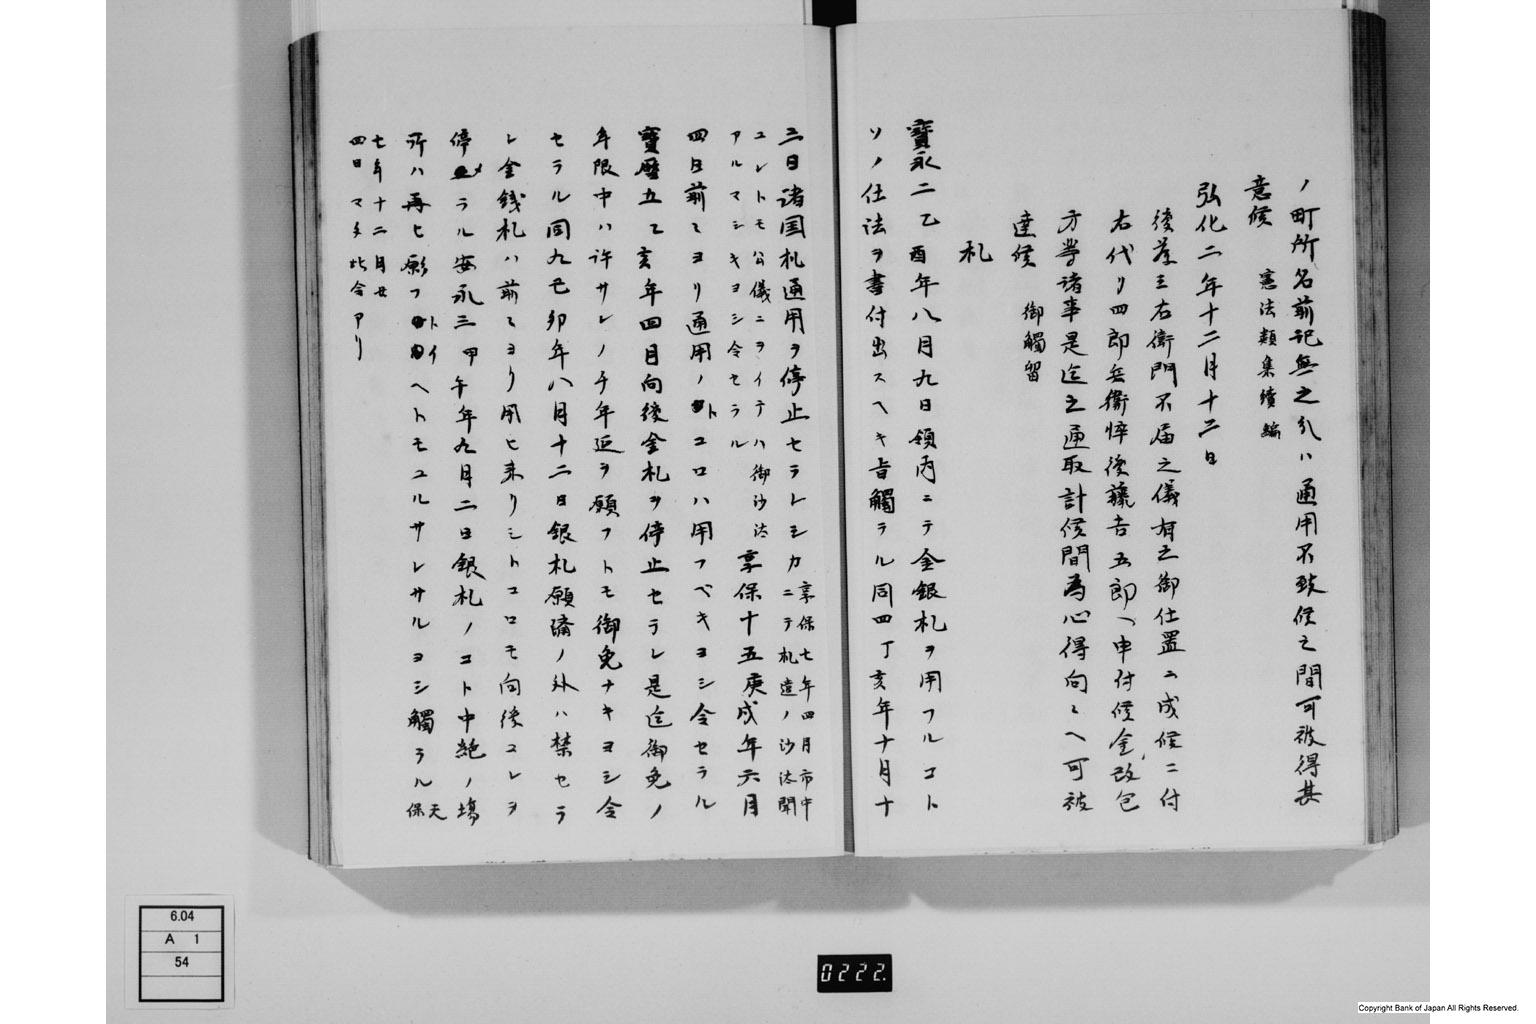 ノ町所名前記無之分ハ通用不致候之間可被得其
意候 憲法類集續編
弘化二年十二月十二日
後藤三右衛門不届之儀有之御仕置ニ成候ニ付
右代リ四郎兵衛悴後藤吉五郎ヘ申付候金改包
方等諸事是迄之通取計候間為心得向々ヘ可被
達候 御觸留
札
寶永二乙酉年八月九日領内ニテ金銀札ヲ用フルコト
ソノ仕法ヲ書付出スヘキ旨觸ラル同四丁亥年十月十
三日諸国札通用ヲ停止セラレシカ享保七年四月市中ニテ札遣ノ沙汰聞
ユレトモ公儀ニヲイテハ御沙汰アルマシキヨシ令セラル 享保十五庚戌年六月
四日前々ヨリ通用ノトコロハ用フベキヨシ令セラル
寶暦五乙亥年四月向後金札ヲ停止セラレ是迄御免ノ
年限中ハ許サレノチ年延ヲ願フトモ御免ナキヨシ令
セラル同九己卯年八月十二日銀札願濟ノ外ハ禁セラ
レ金銭札ハ前々ヨリ用ヒ来リシトコロモ向後コレヲ
停メラル安永三甲午年九月二日銀札ノコト中絶ノ場
所ハ再ヒ願フトイヘトモユルサレサルヨシ觸ラル 天保
七年十二月廿四日マタ此令アリ
6.04
A 1
54
0222.
Copyright Bank of Japan All Rights Reserved.